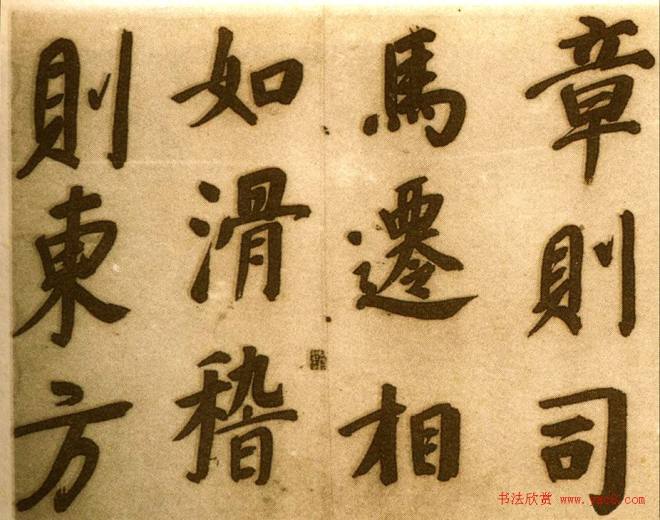 章則司
馬遷相
如滑稽
則東方
书法欣赏 www.yac8.com